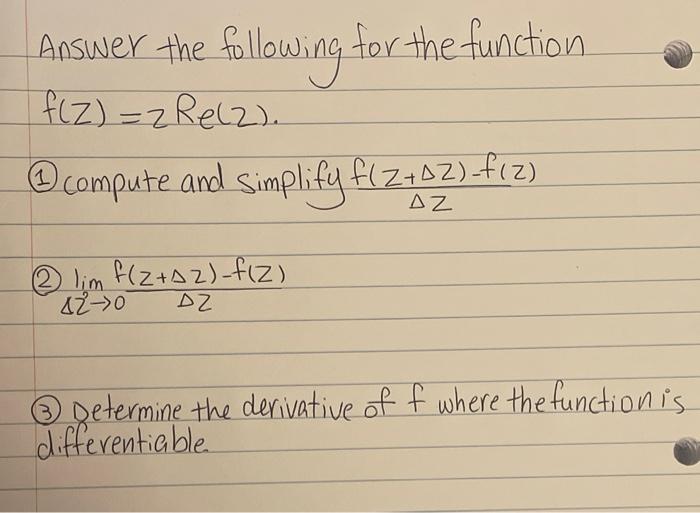 Answer the following for the function
f(z) = z Re(z).
① compute and simplify f(z+Δz)-f(z)
Δz
② lim f(z+Δz)-f(z)
Δz→0 Δz
③ Determine the derivative of f where the function is
differentiable.